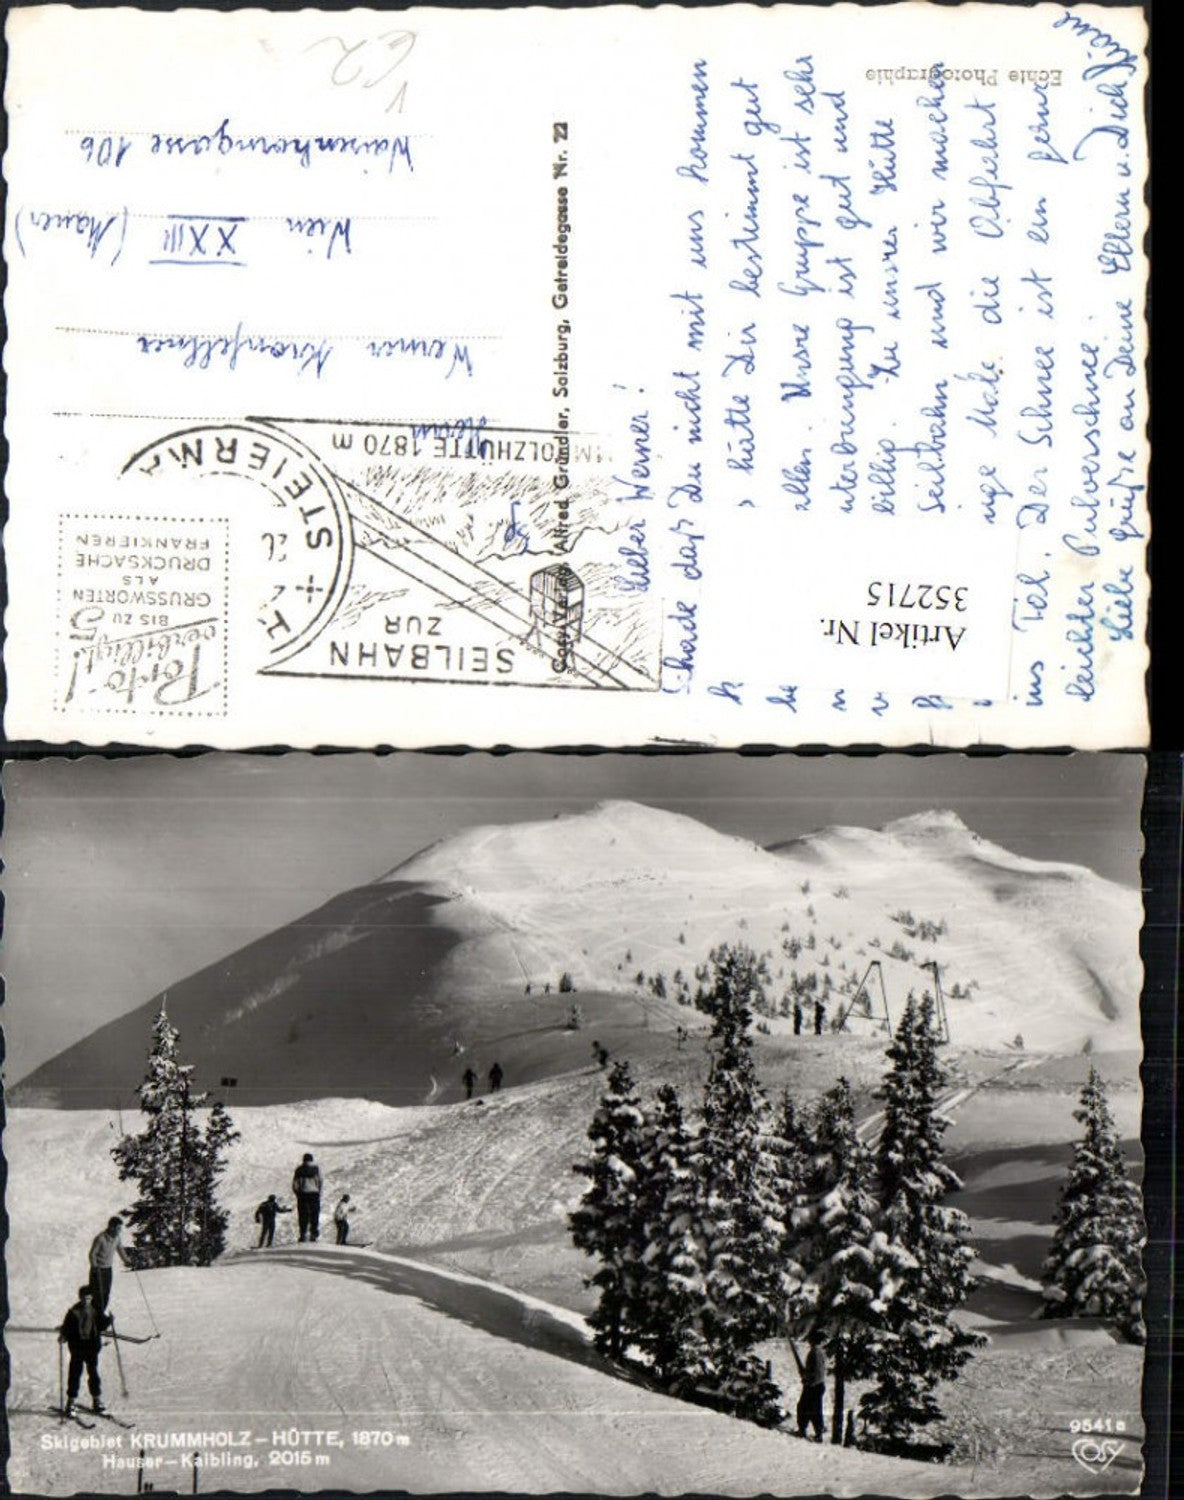 Echte Photographie
Lieber Werner!
Schade daß Du nicht mit uns kommen
hätte Dir bestimmt gut
allen. Unsre Gruppe ist sehr
nterbringung ist gut und
billig. Zu unsrer Hütte
Seilbahn und wir machen
nige Male die Abfahrt
ins Tal. Der Schnee ist ein
leichter Pulverschnee.
Liebe Grüße an Deine Eltern u. Dich
Artikel Nr.
352715
Cosy-Verlag, Alfred Gründler, Salzburg, Getreidegasse Nr. 22
Porto!
verbilligt!
BIS ZU 5
GRUSSWORTEN
ALS
DRUCKSACHE
FRANKIEREN
STEIERMA
SEILBAHN
ZUR
MMHOLZHÜTTE 1870 m
Herrn
Werner
Wien XXIII (Mauer)
Waisenhorngasse 106
Skigebiet KRUMMHOLZ-HÜTTE, 1870m
Hauser-Kaibling, 2015m
9541a
COSY